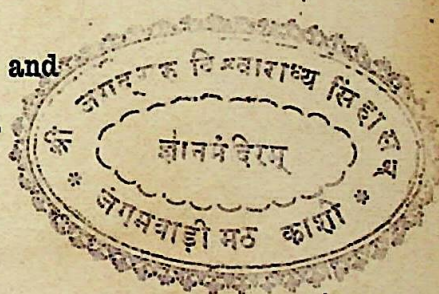 and
श्री जगद्गुरु विश्वाराध्य सिंहासन
ज्ञानमंदिरम्
* जंगमवाड़ी मठ काशी *